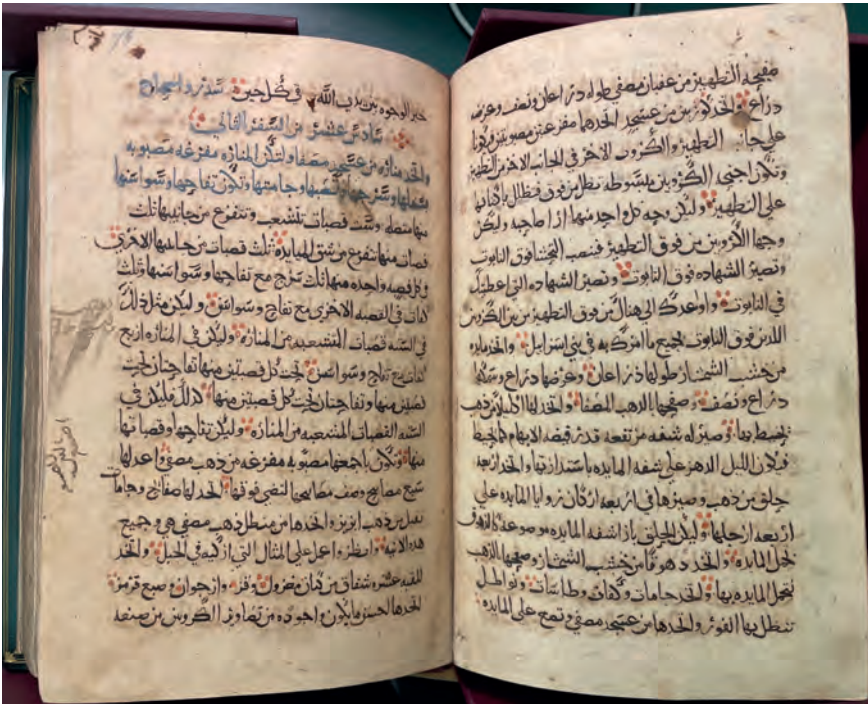 صفيحه التطهير من عقيان مصفى طوله ذراعان ونصف وعرضه
ذراع واتخذ من عسجد اتخذهما مفرغين مصبوبين ويكونا
على جانبي التطهير والكروب الاخر في الجانب الاخر من التطهير
وتكون اجنحه الكروبين مبسوطه تظل من فوق فتظلل
على التطهير وليكن وجه كل واحد منها ازا صاحبه وليكن
وجها الكروبين من فوق التطهير فوق التابوت
وتصير الشهاده فوق التابوت وتصير الشهاده التي اعطيك
في التابوت واواعدك الى هنالك من فوق التطهير من بين الكروبين
اللدين فوق التابوت بجميع ما امرك به في بني اسرايل واتخذ مايده
من خشب الشمشار طولها ذراعان وعرضها ذراع وسمكها
ذراع ونصف وصفحها بالذهب المصفا واتخذ لها اكليلا من ذهب
يحيط بها وصير له شفه مرتفعه قدر قبضه الابهام
فيكون اكليل الذهب على شفه المايده باستدارتها واتخذ اربعه
حلق من ذهب وصيرها في اربعه اركان زوايا المايده على
اربعه ارجلها وليكن الحلق بازا شفه المايده موضوعه
لحمل المايده واتخذ دهوقا من خشب الشمشار وصفحها بالذهب
لتحمل المايده بها واتخذ جامات وطاسات ونواطل
تنطل بها واتخذها من عسجد مصفى وتضع على المايده
خبز الوجوه بين يدي الله في كل حين واصحاح
سادس عشر من السفر الثاني
واتخذ مناره من عسجد مصفا ولتكن المناره مفرغه مصبوبه
وسرجها وقصبها وجاماتها وتكون تفاحها وسواسنها
منها متصله وست قصبات تنشعب وتتفرع من جانبيها ثلث
قصبات منها تتفرع من شق المايده ثلث قصبات من جانبها الاخرى
وكل قصبه واحده منها ثلث سرج مع تفاحها وسواسنها وثلث
في القصبه الاخرى مع تفاح وسواسن وليكن مثل ذلك
في السته قصبات المنشعبه من المناره وليكن في المناره اربع
مع تفاح وسواسن تحت كل قصبتين منها تفاحتان تحت
قصبتين منها وتفاحتان تحت كل قصبتين منها كذلك فليكن في
السته القصبات المنشعبه من المناره وليكن تفاحها وقصباتها
منها وتكون باجمعها مصبوبه مفرغه من ذهب مصفى واعد لها
سبع مصابيح وصف مصابيحها لتضي فوقها واتخذ لها صفائح وجامات
تعمل من ذهب ابريز واتخذها من ذهب مصفى هي وجميع
هذه الانيه وانظر واعمل على المثال التي اريكه في الجبل واتخذ
للقبه عشره شقاق من كتان مغزول وقز وارجوان وصبع قرمز
اتخذها احسن ما يكون واجوده من تصاوير الكروبين من صنعه